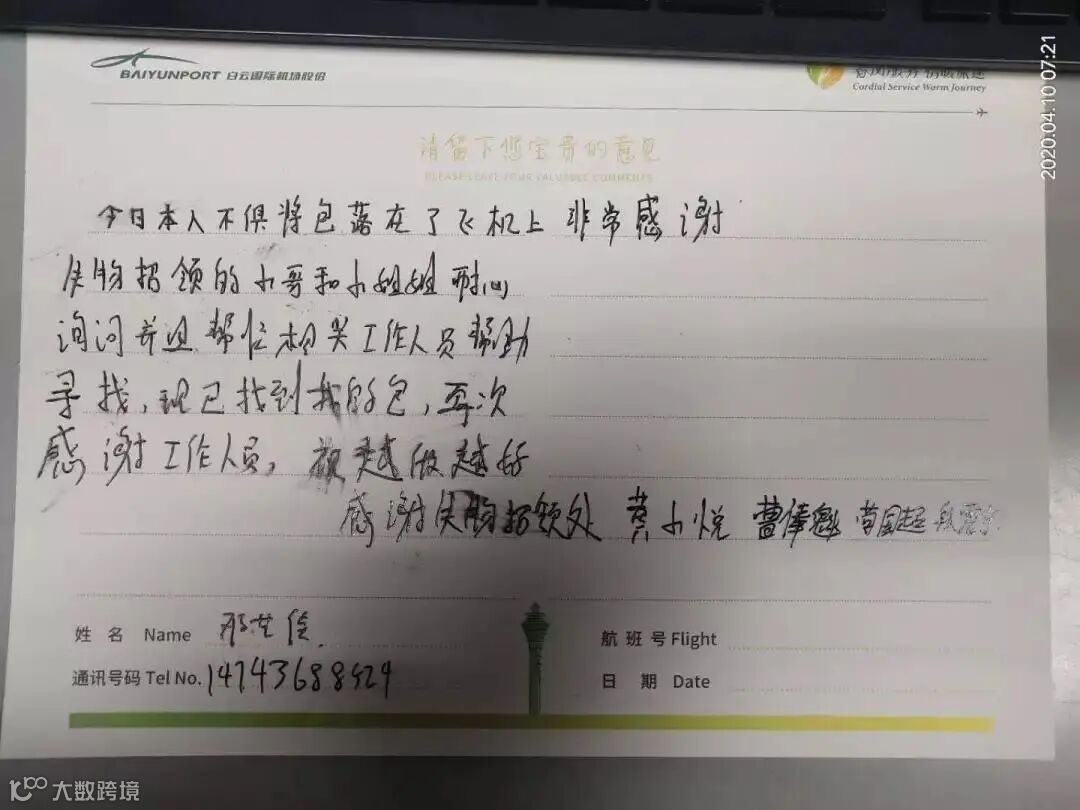 BAIYUNPORT 白云国际机场股份
Cordial Service Warm Journey
2020.04.10 07:21
请留下您宝贵的意见
PLEASE LEAVE YOUR VALUABLE COMMENTS
今日本人不俱将包落在了飞机上 非常感谢
失物招领的小哥和小姐姐耐心
询问并且帮忙相关工作人员帮助
寻找,现已找到我的包,再次
感谢工作人员,祝越做越好
感谢失物招领处 蔡小悦
姓 名 Name
航班号 Flight
通讯号码 Tel No. 14743688524
日 期 Date
大数跨境